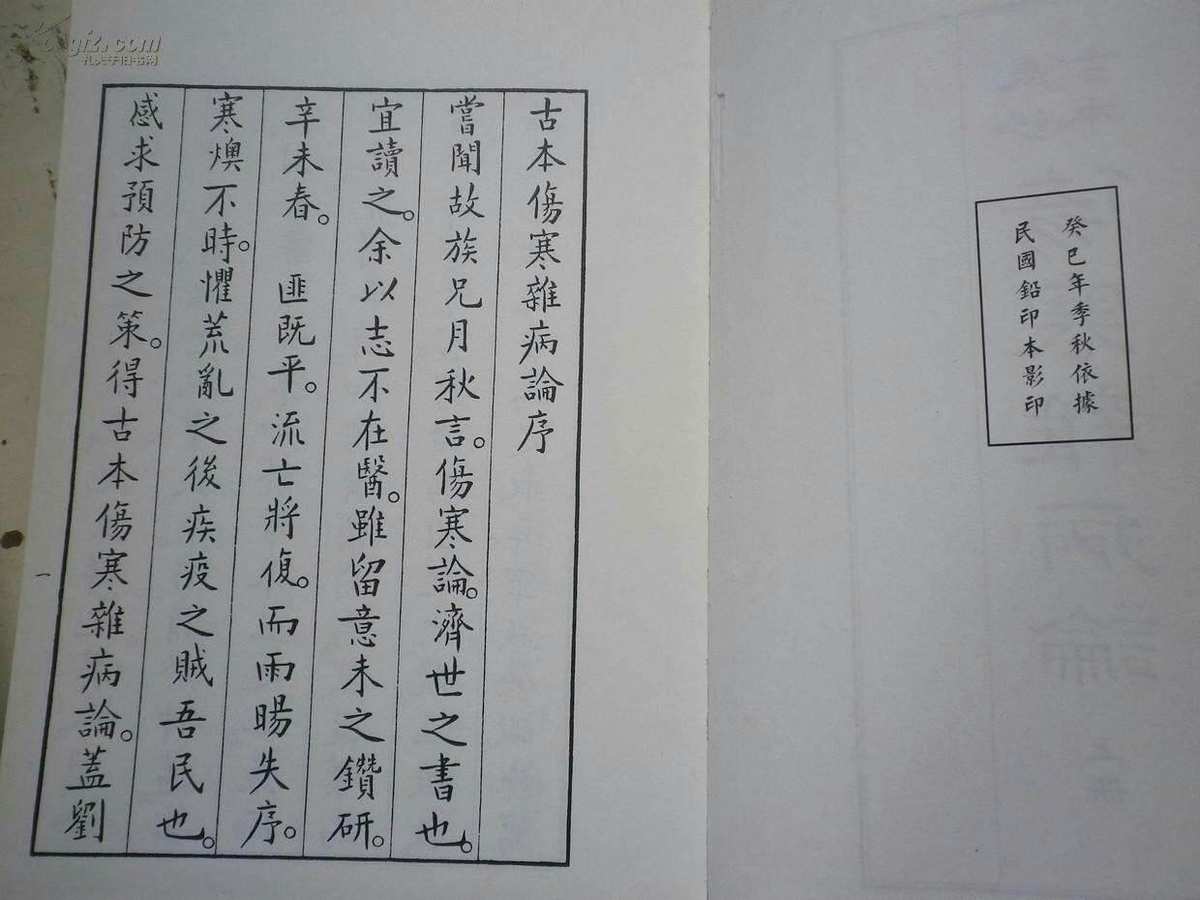 癸巳年季秋依據
民國鉛印本影印
古本傷寒雜病論序
嘗聞故族兄月秋言。傷寒論。濟世之書也。
宜讀之。余以志不在醫。雖留意未之鑽研。
辛未春。 匪既平。流亡將復。而雨暘失序。
寒燠不時。懼荒亂之後疾疫之賊吾民也。
感求預防之策。得古本傷寒雜病論。蓋劉
一
孔夫子旧书网